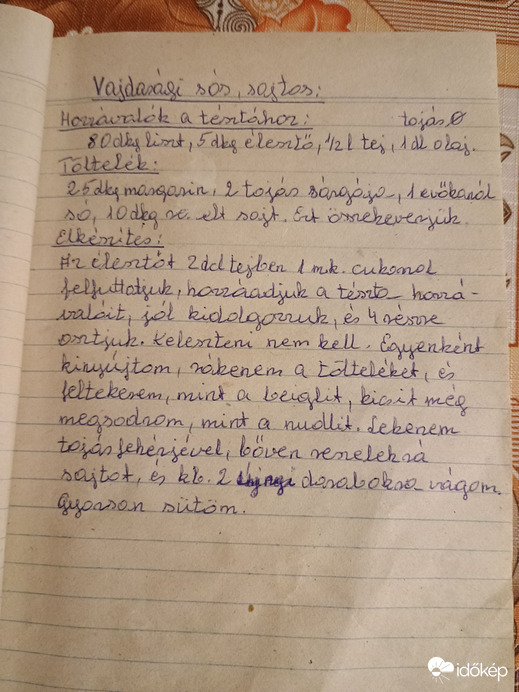 Vajdasági sós, sajtos:
Hozzávalók a tésztához: tojás Ø
80 dkg liszt, 5 dkg élesztő, 1/2 l tej, 1 dl olaj.
Töltelék:
25 dkg margarin, 2 tojás sárgája, 1 evőkanál
só, 10 dkg re. elt sajt. Ezt összekeverjük.
Elkészítés:
Az élesztőt 2 dcl tejben 1 mk. cukorral
felfuttatjuk, hozzáadjuk a tészta hozzá-
valóit, jól kidolgozzuk, és 4 részre
osztjuk. Keleszteni nem kell. Egyenként
kinyújtom, rákenem a tölteléket, és
feltekerem, mint a beiglit, kicsit még
megsodrom, mint a nudlit. Lekenem
tojásfehérjével, bőven reszelek rá
sajtot, és kb. 2 ujjnyi darabokra vágom.
Gyorsan sütöm.
időkép